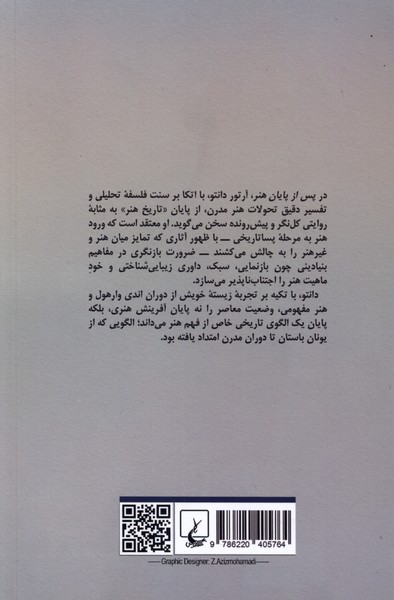 در پس از پایان هنر، آرتور دانتو، با اتکا بر سنت فلسفهٔ تحلیلی و
تفسیر دقیق تحولات هنر مدرن، از پایان «تاریخ هنر» به مثابهٔ
روایتی کل‌نگر و پیش‌رونده سخن می‌گوید. او معتقد است که ورود
هنر به مرحلهٔ پساتاریخی ـــ با ظهور آثاری که تمایز میان هنر و
غیرهنر را به چالش می‌کشند ـــ ضرورت بازنگری در مفاهیم
بنیادینی چون بازنمایی، سبک، داوری زیبایی‌شناختی و خودِ
ماهیت هنر را اجتناب‌ناپذیر می‌سازد.
دانتو، با تکیه بر تجربهٔ زیستهٔ خویش از دوران اندی وارهول و
هنر مفهومی، وضعیت معاصر را نه پایان آفرینش هنری، بلکه
پایان یک الگوی تاریخی خاص از فهم هنر می‌داند؛ الگویی که از
یونان باستان تا دوران مدرن امتداد یافته بود.
9 786220 405764
Graphic Designer: Z.Azizmohamadi